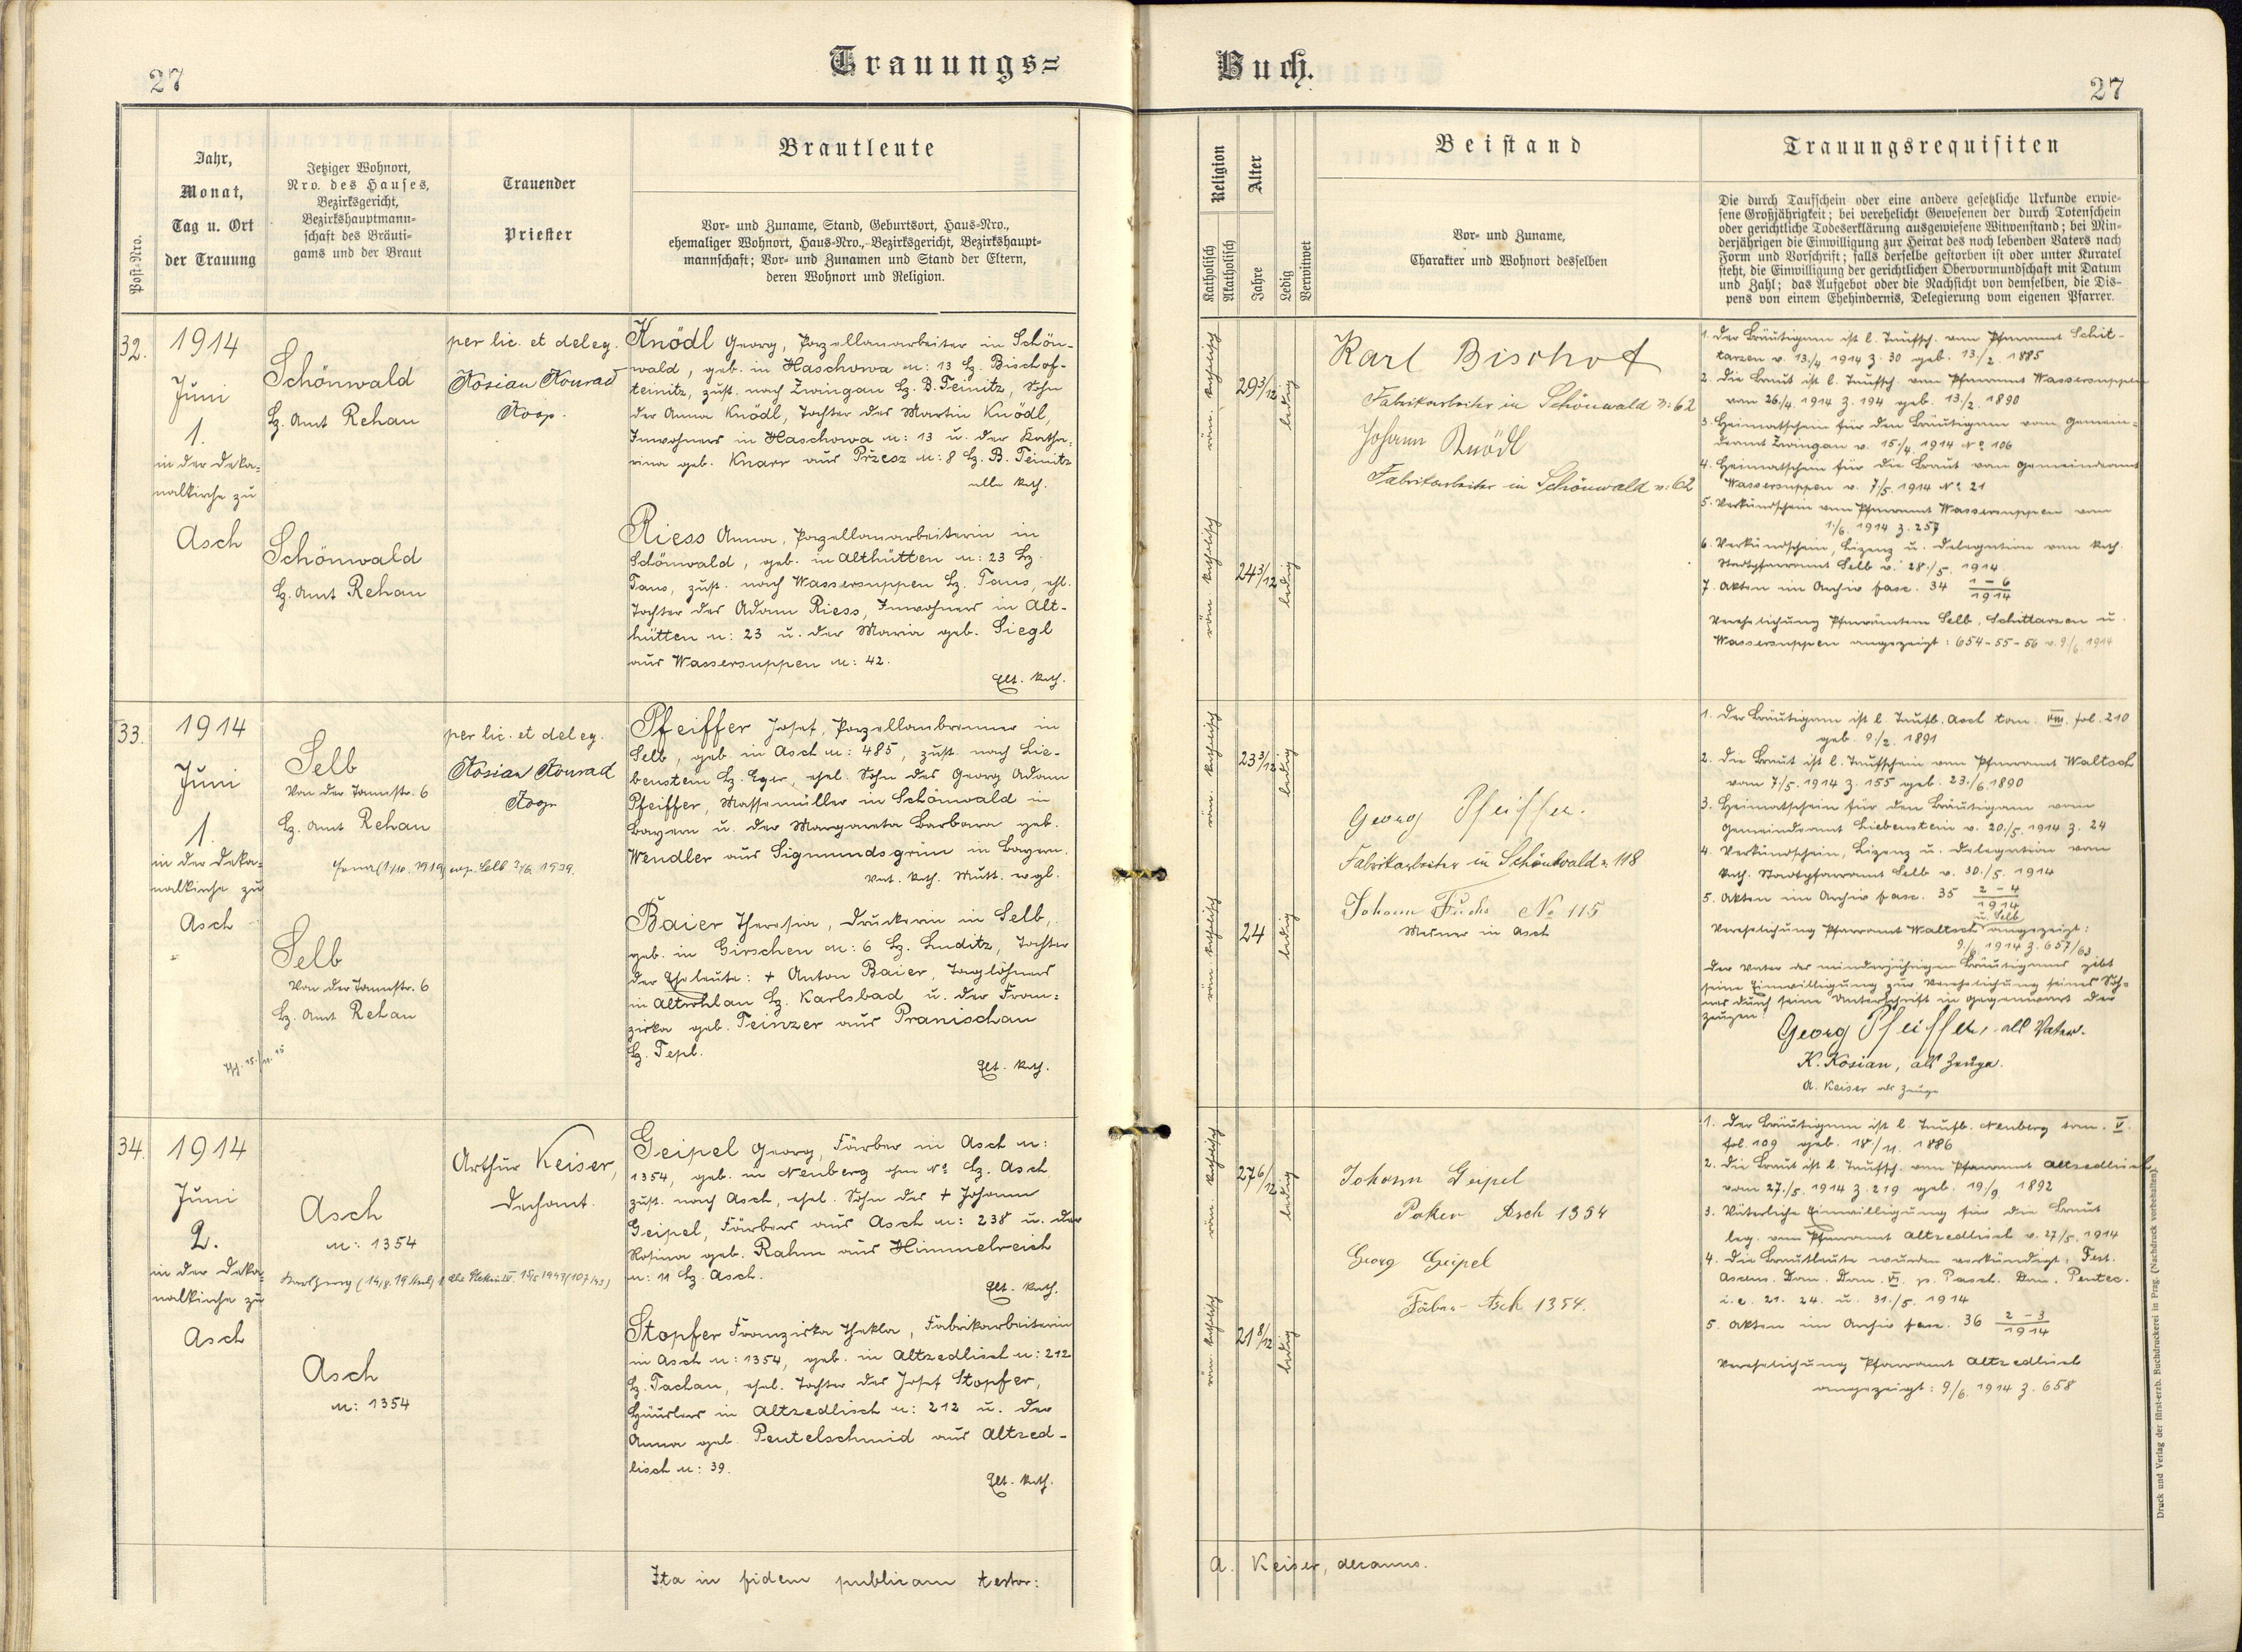 27
Trauungs=
Post-Nro.
Jahr,
Monat,
Tag u. Ort
der Trauung
Jetziger Wohnort,
Nro. des Hauses,
Bezirksgericht,
Bezirkshauptmann-
schaft des Bräuti-
gams und der Braut
Trauender
Priester
Brautleute
Vor- und Zuname, Stand, Geburtsort, Haus-Nro.,
ehemaliger Wohnort, Haus-Nro., Bezirksgericht, Bezirkshaupt-
mannschaft; Vor- und Zunamen und Stand der Eltern,
deren Wohnort und Religion.
32.
1914
Juni
1.
in der Deka-
nalkirche zu
Asch
Schönwald
Bz. Amt Rehau
Schönwald
Bz. Amt Rehau
per lic. et deleg.
Kosian Konrad
Koop.
Knödl Georg, Porzellanarbeiter in Schön-
wald, geb. in Haschowa n: 13 Bz. Bischof-
teinitz, zust. nach Zwingau Bz. B. Teinitz, Sohn
der Anna Knödl, Tochter des Martin Knödl,
Inwohners in Haschowa n: 13 u. der Katha-
rina geb. Knarr aus Přzesz n: 8 Bz. B. Teinitz
alle kath.
Riess Anna, Porzellanarbeiterin in
Schönwald, geb. in Althütten n: 23 Bz.
Taus, zust. nach Wassersuppen Bz. Taus, ehl.
Tochter des Adam Riess, Inwohners in Alt-
hütten n: 23 u. der Maria geb. Siegl
aus Wassersuppen n: 42.
Elt. kath.
33.
1914
Juni
1.
in der Deka-
nalkirche zu
Asch
Selb
Von der Tannstr. 6
Bz. Amt Rehau
Selb
Von der Tannstr. 6
Bz. Amt Rehau
per lic. et deleg.
Kosian Konrad
Koop
Pfeiffer Josef, Porzellanbrenner in
Selb, geb. in Asch n: 485, zust. nach Lie-
benstein Bz. Eger, ehel. Sohn des Georg Adam
Pfeiffer, Massemüller in Schönwald in
Bayern u. der Margareta Barbara geb.
Wendler aus Sigmundsgrün in Bayern.
Vat. kath. Mutt. evgl.
Baier Theresia, Druckerin in Selb,
geb. in Girschen n: 6 Bz. Luditz, Tochter
der Eheleute: + Anton Baier, Taglöhners
in Altrohlau Bz. Karlsbad u. der Fran-
ziska geb. Teinzer aus Pranischau
Bz. Tepl.
Elt. kath.
34.
1914
Juni
2.
in der Deka-
nalkirche zu
Asch
Asch
n: 1354
Asch
n: 1354
Arthur Keiser,
Dechant.
Geipel Georg, Färber in Asch n:
1354, geb. in Neuberg ohne No Bz. Asch
zust. nach Asch, ehel. Sohn des + Johann
Geipel, Färbers aus Asch n: 238 u. der
Rosina geb. Rahm aus Himmelreich
n: 11 Bz. Asch.
Elt. kath.
Stopfer Franziska Thekla, Fabrikarbeiterin
in Asch n: 1354, geb. in Altzedlisch n: 212
Bz. Tachau, ehel. Tochter des Josef Stopfer,
Häuslers in Altzedlisch n: 212 u. der
Anna geb. Peutelschmid aus Altzed-
lisch n: 39.
Elt. kath.
Ita in fidem publicam testor:
Buch.
27
Religion
Katholisch
Akatholisch
Alter
Jahre
Ledig
Verwitwet
Beistand
Vor- und Zuname,
Charakter und Wohnort desselben
Trauungsrequisiten
Die durch Taufschein oder eine andere gesetzliche Urkunde erwie-
sene Großjährigkeit; bei verehelicht Gewesenen der durch Totenschein
oder gerichtliche Todeserklärung ausgewiesene Witwenstand; bei Min-
derjährigen die Einwilligung zur Heirat des noch lebenden Vaters nach
Form und Vorschrift; falls derselbe gestorben ist oder unter Kuratel
steht, die Einwilligung der gerichtlichen Obervormundschaft mit Datum
und Zahl; das Aufgebot oder die Nachsicht von demselben, die Dis-
pens von einem Ehehindernis, Delegierung vom eigenen Pfarrer.
röm. katholisch
29 3/12
ledig
röm. katholisch
24 3/12
ledig
Karl Bischof
Fabrikarbeiter in Schönwald n: 62
Johann Knödl
Fabrikarbeiter in Schönwald n: 62
1. Der Bräutigam ist l. Taufsch. vom Pfarramt Schit-
tarzen v. 13./4. 1914 Z. 30 geb. 13./2. 1885
2. Die Braut ist l. Taufsch. vom Pfarramt Wassersuppen
vom 26./4. 1914 Z. 194 geb. 13./2. 1890
3. Heimatschein für den Bräutigam vom Gemein-
deamt Zwingau v. 15./4. 1914 No 106
4. Heimatschein für die Braut vom Gemeindeamt
Wassersuppen v. 7/5. 1914 No 21
5. Verkündschein vom Pfarramt Wassersuppen vom
1./6. 1914 Z. 257
6. Verkündschein, Lizenz u. Delegation vom kath.
Stadtpfarramt Selb v. 28./5. 1914.
7. Akten im Archiv fasc. 34 1-6/1914
Verehelichung Pfarrämtern Selb, Schittarzen u.
Wassersuppen angezeigt: 654-55-56 v. 9./6. 1914
röm. katholisch
23 3/12
ledig
röm. katholisch
24
ledig
Georg Pfeiffer.
Fabrikarbeiter in Schönwald n 118
Johann Fuchs No 115
Mesner in Asch
1. Der Bräutigam ist l. Taufb. Asch tom. VIII. fol. 210
geb. 9/2. 1891
2. Die Braut ist l. Taufschein vom Pfarramt Waltsch
vom 7/5. 1914 Z. 155 geb. 23./6. 1890
3. Heimatschein für den Bräutigam vom
Gemeindeamt Liebenstein v. 20./5. 1914 Z. 24
4. Verkündschein, Lizenz u. Delegation vom
kath. Stadtpfarramt Selb v. 30./5. 1914
5. Akten im Archiv fasc. 35 2-4/1914
u. Selb
Verehelichung Pfarramt Waltsch angezeigt:
9./6. 1914 Z. 657/63
Der Vater des minderjährigen Bräutigams gibt
seine Einwilligung zur Verehelichung seines Soh-
nes durch seine Unterschrift in Gegenwart der
Zeugen:
Georg Pfeiffer, als Vater.
K. Kosian, als Zeuge.
A. Keiser als Zeuge
röm. katholisch
27 6/12
ledig
röm. katholisch
21 8/12
ledig
Johann Geipel
Paker Asch 1354
Georg Geipel
Färber Asch 1354.
1. Der Bräutigam ist l. Taufb. Neuberg tom. V.
fol. 109 geb. 18./11. 1886
2. Die Braut ist l. Taufsch. vom Pfarramt Altzedlisch
vom 27./5. 1914 Z. 219 geb. 19/9. 1892
3. Väterliche Einwilligung für die Braut
beg. vom Pfarramt Altzedlisch v. 27/5. 1914
4. Die Brautleute wurden verkündigt: Fest.
Ascens. Dom. Dom. VI. p. Pasch. Dom. Pentec.
i.e. 21. 24. u. 31./5. 1914
5. Akten im Archiv fasc. 36 2-3/1914
Verehelichung Pfarramt Altzedlisch
angezeigt: 9/6. 1914 Z. 658
A. Keiser, decanus.
Druck und Verlag der fürst-erzb. Buchdruckerei in Prag. (Nachdruck vorbehalten).